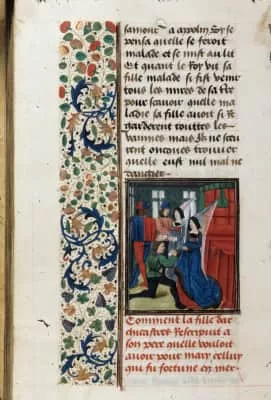 samour a appolin Sy se
pensa quelle se feroit
malade et se mist au lit
Et quant le Roy vit sa
fille malade si fist venir
tous les mires de sa
pour sauoir quelle ma
ladie sa fille auoit si
garderent touttes les
vainnes mais ilz ne sceu
rent oncques trouuer
quelle eust nul mal ne

Comment la fille
Rescripuit a
son pere quelle vouloit
auoir pour mary celluy
qui fu fortune en mer